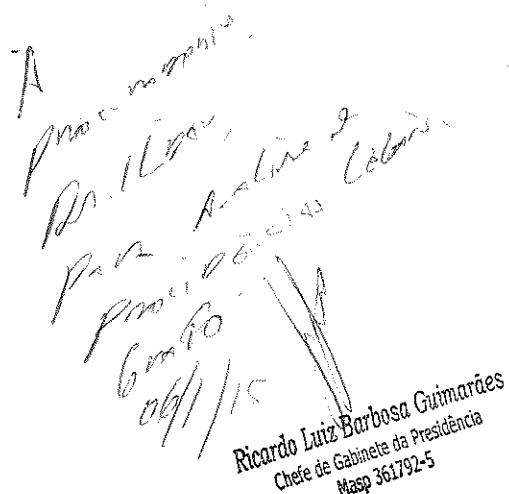 À
Procuradoria.
Dr.
para análise e
providências cabíveis.
Grato.
06/1/15
Ricardo Luiz Barbosa Guimarães
Chefe de Gabinete da Presidência
Masp 361792-5